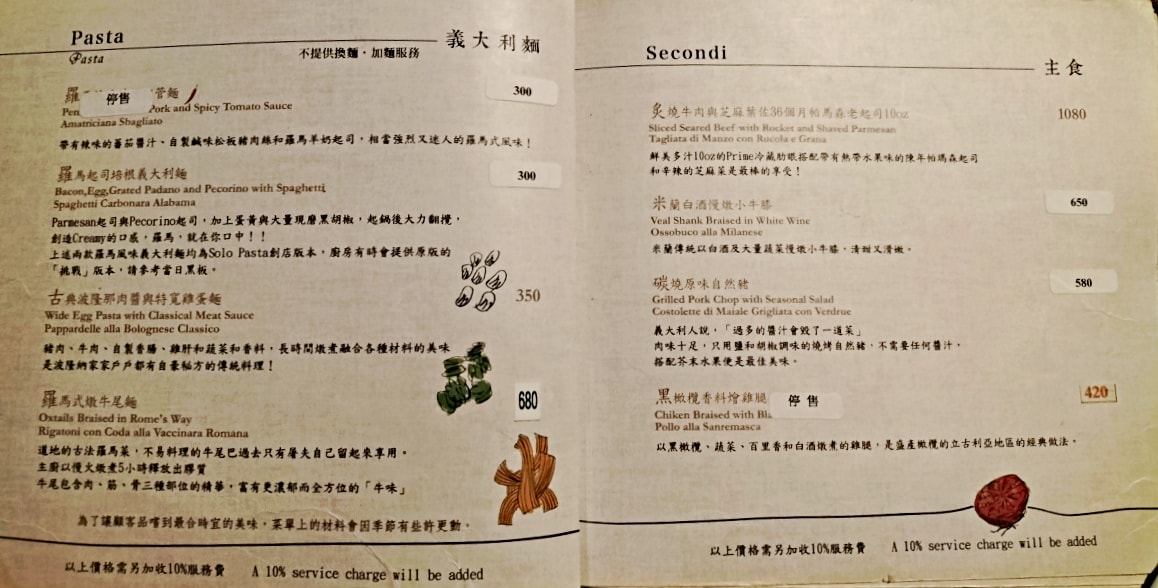 Pasta
Pasta
不提供換麵·加麵服務
義大利麵
羅 停售 管麵
300
Pen Pork and Spicy Tomato Sauce
Amatriciana Sbagliato
帶有辣味的蕃茄醬汁、自製鹹味松板豬肉絲和羅馬羊奶起司，相當強烈又迷人的羅馬式風味！
羅馬起司培根義大利麵
300
Bacon,Egg,Grated Padano and Pecorino with Spaghetti
Spaghetti Carbonara Alabama
Parmesan起司與Pecorino起司，加上蛋黃與大量現磨黑胡椒，起鍋後大力翻攪，
創造Creamy的口感，羅馬，就在你口中！！
上述兩款羅馬風味義大利麵均為Solo Pasta創店版本，廚房有時會提供原版的
「挑戰」版本，請參考當日黑板。
古典波隆那肉醬與特寬雞蛋麵
350
Wide Egg Pasta with Classical Meat Sauce
Pappardelle alla Bolognese Classico
豬肉、牛肉、自製香腸、雞肝和蔬菜和香料，長時間燉煮融合各種材料的美味
是波隆納家家戶戶都有自豪秘方的傳統料理！
羅馬式燉牛尾麵
680
Oxtails Braised in Rome's Way
Rigatoni con Coda alla Vaccinara Romana
道地的古法羅馬菜，不易料理的牛尾巴過去只有屠夫自己留起來享用。
主廚以慢火燉煮5小時釋放出膠質
牛尾包含肉、筋、骨三種部位的精華，富有更濃郁而全方位的「牛味」
為了讓顧客品嚐到最合時宜的美味，菜單上的材料會因季節有些許更動。
以上價格需另加收10%服務費 A 10% service charge will be added
Secondi
主食
炙燒牛肉與芝麻葉佐36個月帕馬森老起司10oz
1080
Sliced Seared Beef with Rocket and Shaved Parmesan
Tagliata di Manzo con Rucola e Grana
鮮美多汁10oz的Prime冷藏肋眼搭配帶有熱帶水果味的陳年帕瑪森起司
和辛辣的芝麻菜是最棒的享受！
米蘭白酒慢燉小牛膝
650
Veal Shank Braised in White Wine
Ossobuco alla Milanese
米蘭傳統以白酒及大量蔬菜慢燉小牛膝，清甜又滑嫩。
碳燒原味自然豬
580
Grilled Pork Chop with Seasonal Salad
Costolette di Maiale Grigliata con Verdrue
義大利人說，「過多的醬汁會毀了一道菜」
肉味十足，只用鹽和胡椒調味的燒烤自然豬，不需要任何醬汁，
搭配芥末水果便是最佳美味。
黑橄欖香料燴雞腿 停售
420
Chiken Braised with Bla
Pollo alla Sanremasca
以黑橄欖、蔬菜、百里香和白酒燉煮的雞腿，是盛產橄欖的立古利亞地區的經典做法。
以上價格需另加收10%服務費 A 10% service charge will be added